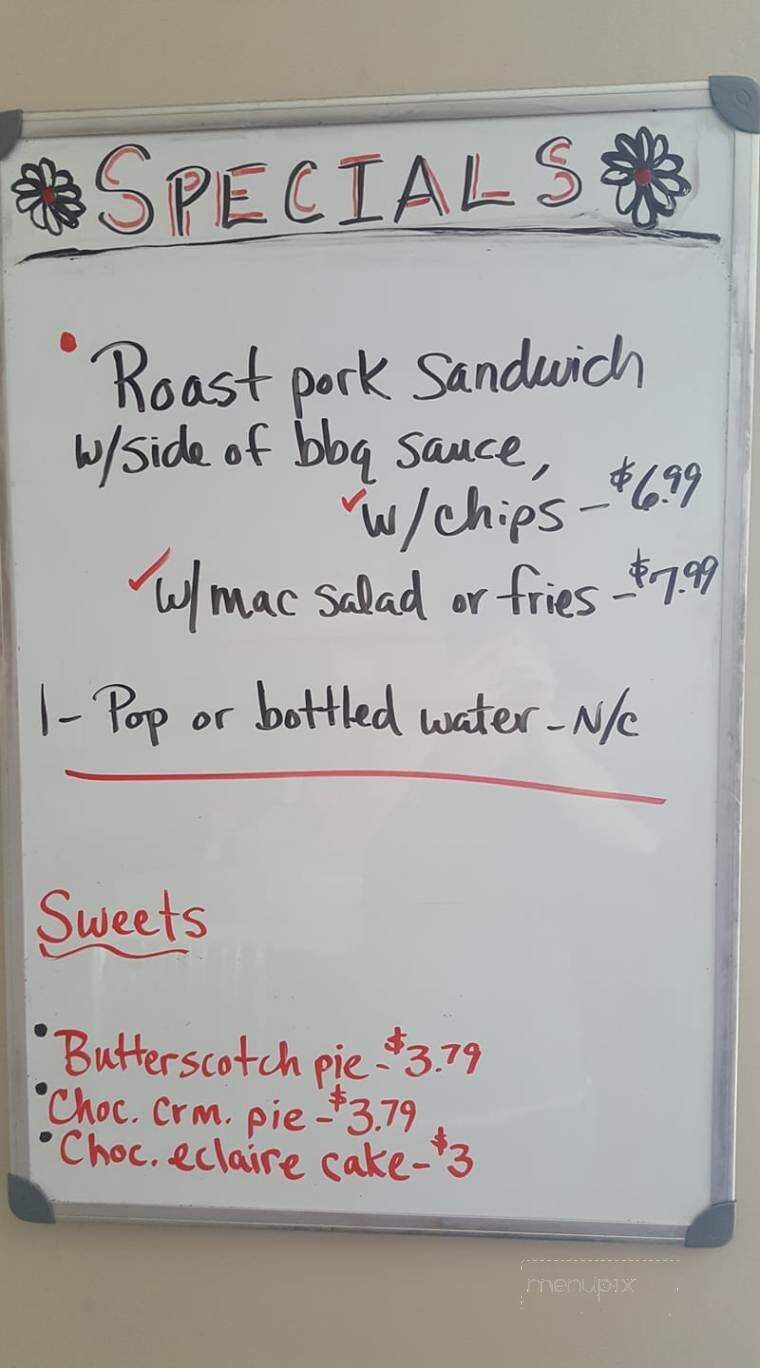 SPECIALS
Roast pork sandwich
w/side of bbq sauce,
w/chips - $6.99
w/mac salad or fries - $7.99
1 - Pop or bottled water - N/C
Sweets
Butterscotch pie - $3.79
Choc. crm. pie - $3.79
Choc. eclaire cake - $3
menupix